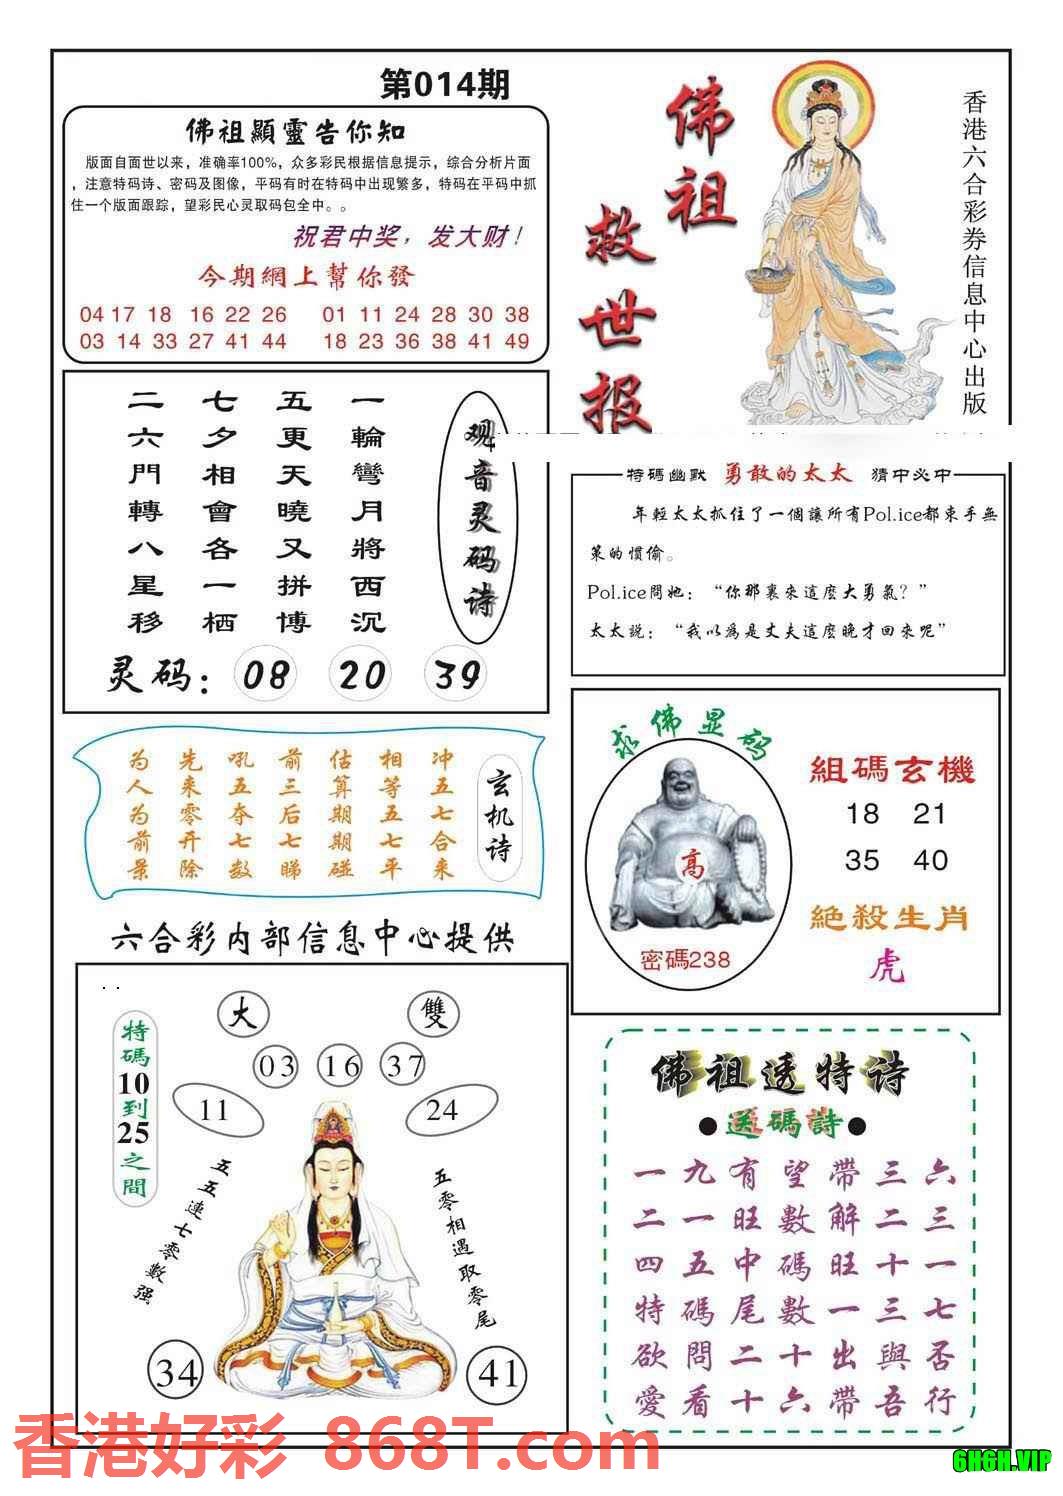 第014期
佛祖顯靈告你知
版面自面世以来，准确率100%，众多彩民根据信息提示，综合分析片面
，注意特码诗、密码及图像，平码有时在特码中出现繁多，特码在平码中抓
住一个版面跟踪，望彩民心灵取码包全中。。
祝君中奖，发大财！
今期網上幫你發
04 17 18 16 22 26 01 11 24 28 30 38
03 14 33 27 41 44 18 23 36 38 41 49
佛祖
救世报
香港六合彩券信息中心出版
观音灵码诗
一輪彎月將西沉
五更天曉又拼博
七夕相會各一栖
二六門轉八星移
灵码：08 20 39
特碼幽默 勇敢的太太 猜中必中
年輕太太抓住了一個讓所有Pol.ice都束手無
策的慣偷。
Pol.ice問她：“你那裏來這麽大勇氣？”
太太説：“我以為是丈夫這麽晚才回來呢”
玄机诗
冲五七合来
相等五七平
估算期期碰
前三后七睇
吼五夺七数
先来零开除
为人为前景
求佛显码
高
密碼238
組碼玄機
18 21
35 40
絶殺生肖
虎
六合彩内部信息中心提供
特碼10到25之間
大 雙
03 16 37
11 24
五五連七零數强
五零相遇取零尾
34 41
佛祖透特诗
●送碼詩●
一九有望帶三六
二一旺數解二三
四五中碼旺十一
特碼尾數一三七
欲問二十出與否
愛看十六帶吾行
香港好彩 868T.com
6H6H.VIP